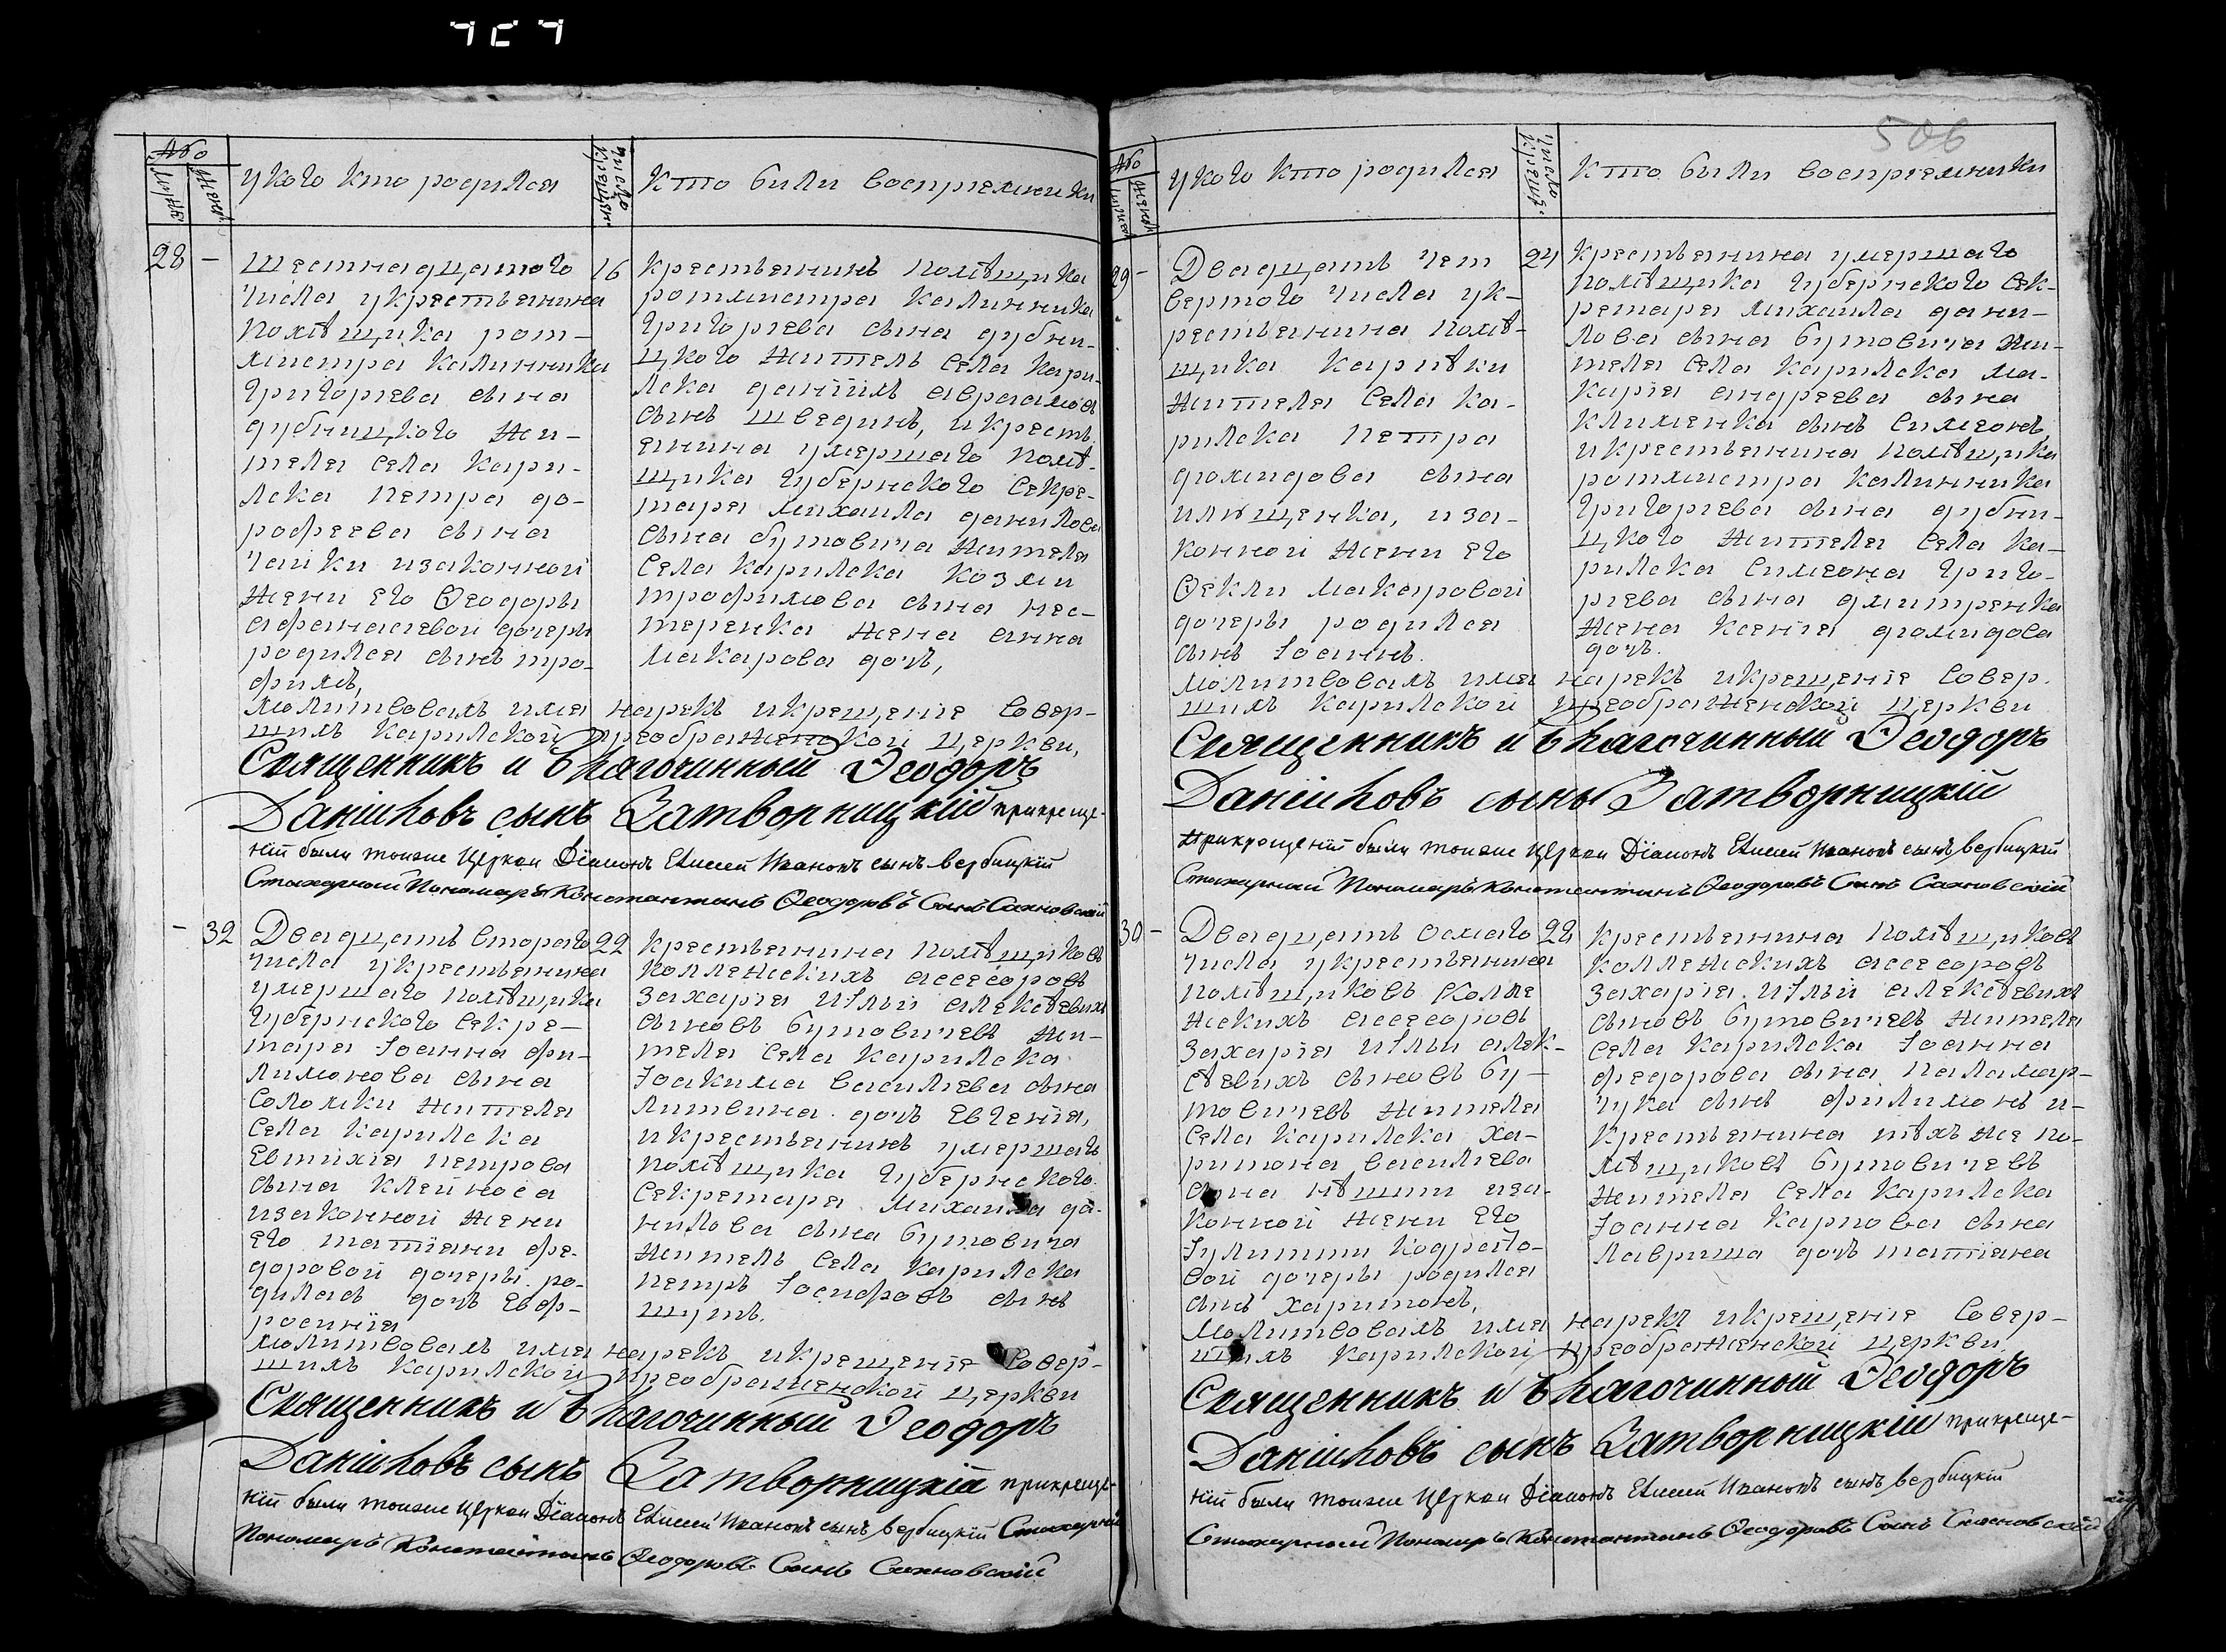 506
Число
мужеск
женск
у кого кто родился
число крещен
кто были восприемники
28 –
Шестнадцатого
числа укрестьянина
помѣщика рот–
мистра калинника
григориева сына
дубницкого жи–
теля села кари–
лска петра до–
рофеева сына
чайки изаконной
жены его Ѳеодоры
афанасиевой дочеры
родился сынъ тро–
фимъ,
16
крестьянинъ помѣщика
ротмистра калинника
григориева сына дубни–
цкого житель села кари–
лска даніилъ авраамовъ
сынъ шведунъ, икресть
янина умершаго помѣ–
щика губернского секре–
таря михаила данилова
сына бутовича жителя
села карилска козми
трофимова сына нес–
теренка жена анна
макарова дочъ,
молитвовалъ имя нарекъ икрещеніе совер–
шилъ карилской преображенской церкви,
Священникъ и благочинный Ѳеодоръ
Даніиловъ сынъ Затворницкій прикреще–
ніи были тоиже Церкви Діаконъ Елисей Ивановъ сынъ вербицкій
Стихарный Пономаръ Константинъ Ѳеодоровъ Сынъ Сахновскій
– 32
Двадцать второго
числа укрестьянина
умершаго помѣщика
губернского секре–
таря Іоанна фи–
лимонова сына
Соломки жителя
села карилска
Евтихія петрова
сына клейноса
изаконной жены
его татіяни фе–
доровой дочеры ро–
дилась дочъ Евф–
росинія
22
крестьянина помѣщиковъ
коллежскихъ ассесоровъ
захарія иІлии алексѣевихъ
сыновъ бутовичевъ жи–
теля села карилска
Іоакима василиева сына
литвина дочъ Евгенія,
икрестьянинъ умершаго
помѣщика губернского
секретаря михаила да–
нилова сына бутовича
житель села карилска
петръ Іосифовъ сынъ
шутъ.
молитвовалъ имя нарекъ икрещеніе совер–
шилъ карилской преображенской церкви
Священникъ и благочинный Ѳеодоръ
Даніиловъ сынъ Затворницкій прикреще–
ніи были тоиже Церкви Діаконъ Елисей Ивановъ сынъ вербицкій Стихарный
Пономаръ Константинъ Ѳеодоровъ Сынъ Сахновскій
Число
мужеск
женск
у кого кто родился
число крещен
кто были восприемники
29 –
Двадцать чет
вертого числа ук–
рестьянина помѣ–
щика карпѣки
жителя села ка–
рилска петра
диомидова сына
илющенка, иза–
конной жены его
Ѳекли макаровой
дочеры родился
сынъ Іоаннъ.
24
крестьянина умершаго
помѣщика губернского сек–
ретаря михаила дани–
лова сына бутовича жи–
теля села карилска ма–
карія андреева сына
клименка сынъ симеонъ,
икрестьянина помѣщика
ротмистра калинника
григориева сына дубни–
цкого жителя села ка–
рилска симеона григо–
риева сына дмитренка
жена ксенія диомидова
дочъ.
молитвовалъ имя нарекъ икрещеніе совер–
шилъ карилской преображенской церкви
Священникъ и благочинный Ѳеодоръ
Даніиловъ сынъ Затворницкій
прикрещеніи были тоиже Церкви Діаконъ Елисей Ивановъ сынъ вербицкій
Стихарный Пономаръ Константинъ Ѳеодоровъ Сынъ Сахновскій
30 –
Двадцать осмаго
числа укрестьянина
помѣщиковъ колле
жскихъ ассесоровъ
захарія иІлии алек–
сѣевихъ сыновъ бу–
товичевъ жителя
села карилска ха–
ритона василиева
сына изъ–
конной жены его
Іулитти
вой дочеры родился
сынъ харитонъ,
28
крестьянина помѣщиковъ
коллежскихъ ассесоровъ
захарія иІлии алексѣевихъ
сыновъ бутовичевъ жителя
села карилска Іоанна
федорова сына паламар–
чука сынъ филимонъ и–
крестьянина тѣхъ же по–
мѣщиковъ бутовичевъ
жителя села карилска
Іоанна карпова сына
лавриша дочъ татіяна
молитвовалъ имя нарекъ икрещеніе совер–
шилъ карилской преображенской церкви
Священникъ и благочинный Ѳеодоръ
Даніиловъ сынъ Затворницкій прикреще–
ніи были тоиже Церкви Діаконъ Елисей Ивановъ сынъ вербицкій
Стихарный Пономаръ Константинъ Ѳеодоровъ Сынъ Сахновскій